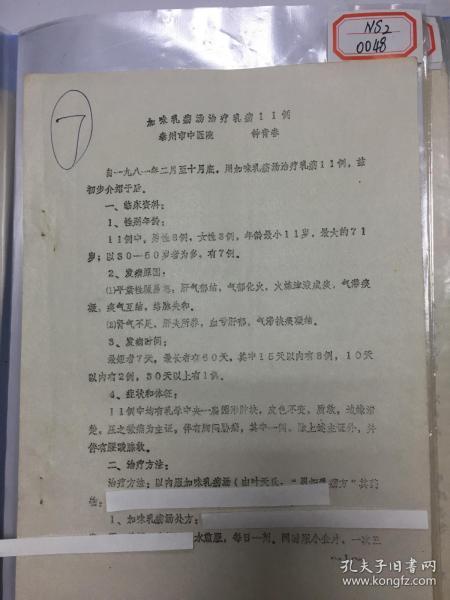 NS2
0048
7
加味乳癖汤治疗乳癖11例
泰州市中医院 钟育春
自一九八一年二月至十月底,用加味乳癖汤治疗乳癖11例,兹
初步介绍于后。
一、临床资料:
1、性别年龄:
11例中,男性8例,女性3例,年龄最小11岁,最大的71
岁;以30—50岁者为多,有7例。
2、发病原因:
⑴平素性躁易怒,肝气郁结,气郁化火,火炼津液成痰,气滞痰
凝,痰气互结,络脉失和。
⑵肾气不足,肝失所养,血亏肝郁,气滞挟痰凝结。
3、发病时间:
最短者7天,最长者有60天,其中15天以内有8例,10天
以内有2例,30天以上有1例。
4、症状和体征:
11例中均有乳晕中央一扁圆形肿块,皮色不变,质软,边缘清
楚,压之微痛为主证,伴有胸闷胁痛,其中一例,除上述主证外,并
伴有腰酸膝软。
二、治疗方法:
治疗方法:以内服加味乳癖汤(由叶天氏,“
方”其药
1、加味乳癖汤处方:
水煎服,每日一剂,同时服小金片,一次三
—1—
孔夫子旧书网